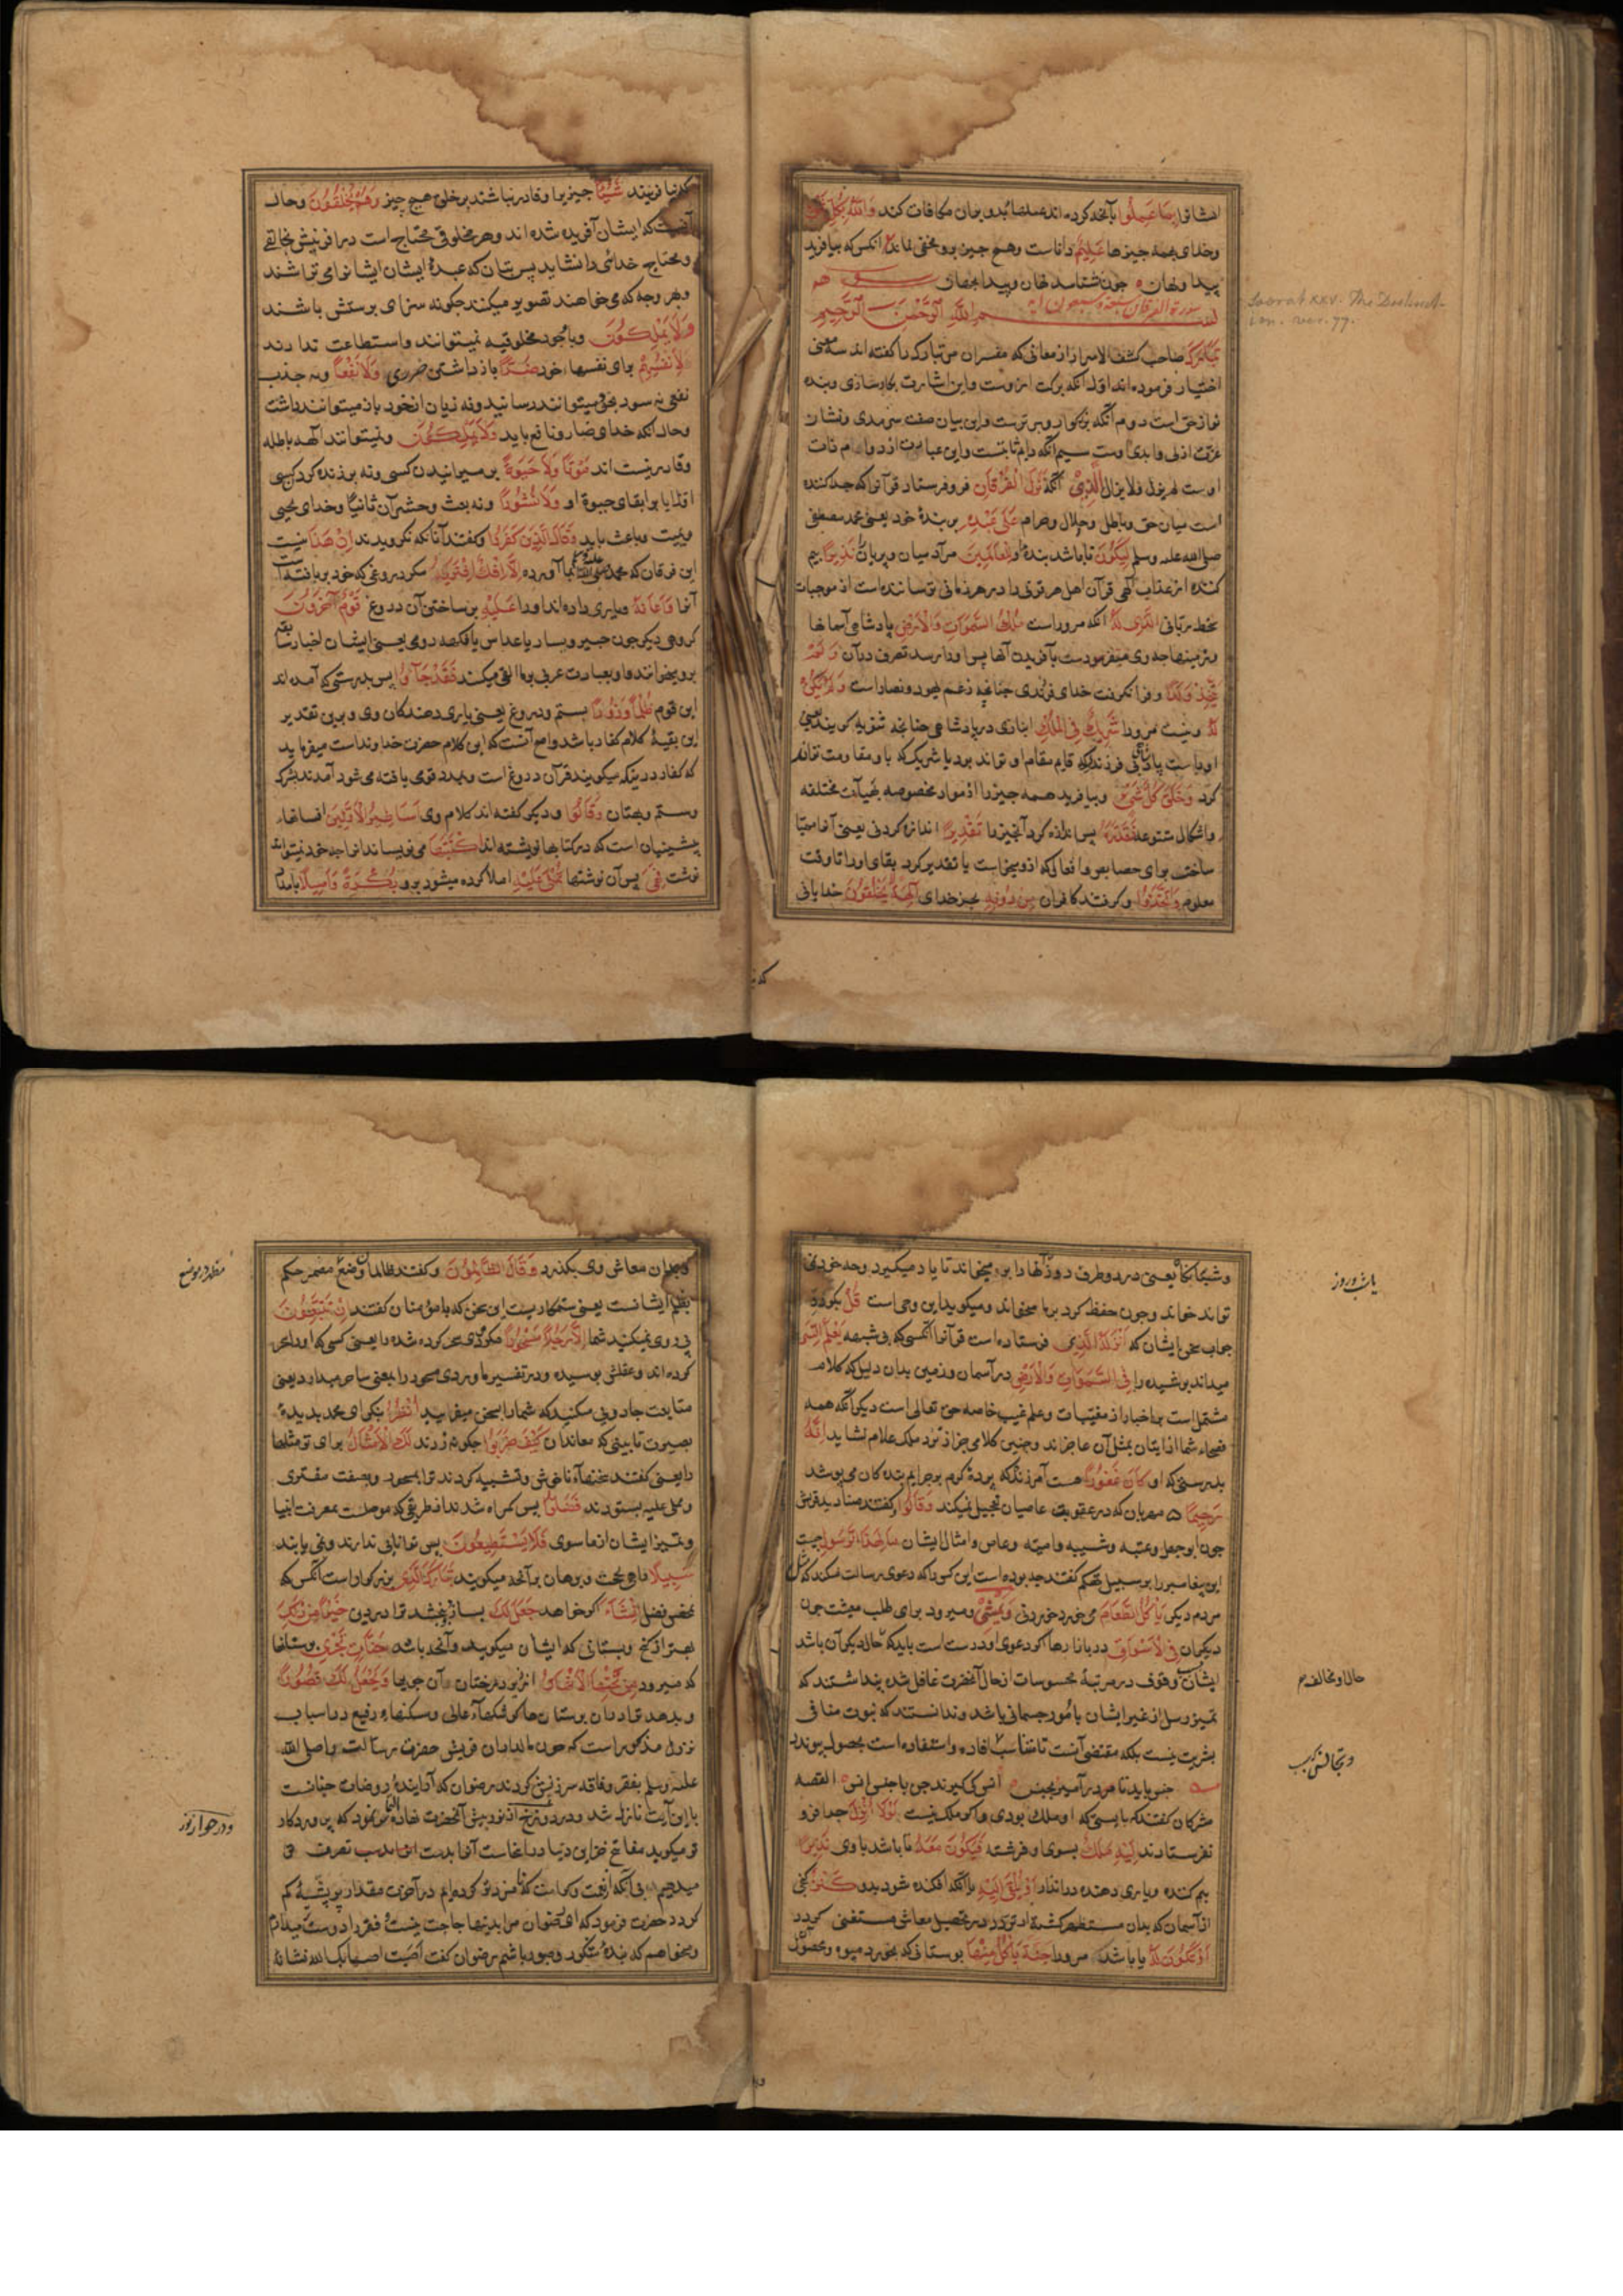 ایشانرا بما عملوا بآنچه کرده‌اند بدیشان مکافات کند والله بکل
وخدای بهمه چیزها علیم داناست وهیچ چیز برو مخفی نماند انکس که بیافرید
پیدا ونهان جون شناسد نهان وپیدا بجهان
سورة الفرقان سبع وسبعون آیه
بسم الله الرحمن الرحیم
Soorat XXV. The Distinct-
ion. ver. 77.
تبارک صاحب کشف الاسرار از معانی که مفسران من تبارک را گفته اند سه معنی
اختیار فرموده اند اول انکه برکت ازوست واین اشارت بکارسازی وبنده
نوازی حق است دوم آنکه بزرکوار وبرترست واین بیان صفت سرمدی ونشان
عزت ازلی وابدی اوست سیم آنکه دایم ثابتست واین عبارت از دوام ذات
اوست لم یزل ولا یزال الذی آنکه نزل الفرقان فرو فرستاد قرآنرا که جدا کننده
است میان حق وباطل وحلال وحرام علی عبده بر بندهٔ خود یعنی محمد مصطفی
صلی الله علیه وسلم لیکون تا باشد بندهٔ او للعالمین مر آدمیان وپریان را نذیرا بیم
کننده از عذاب الهی قرآن اهل هر قرنی را در هر زمانی ترساننده است از موجبات
سخط ربانی الذی له آنکه مر وراست ملک السموات والارض پادشاهی آسمانها
وزمینها چه وی متفرد ست بآفریدن آنها پس او را رسد تصرف در آن ولم
یتخذ ولدا وفرا نکرفت خدای فرزندی چنانچه زعم یهود ونصاراست ولم یکن
له ونیست مر ورا شریک فی الملک انبازی در پادشاهی چنانچه ثنویه کویند یعنی
اوراست پادشاهی فرزند که قایم مقام او تواند بود یا شریک که با او مقاومت تواند
کرد وخلق کل شیء وبیافرید همه چیز را از مواد مخصوصه بهیآت مختلفه
واشکال متنوعه فقدره پس اندازه کرد آنچیز را تقدیرا اندازه کردنی یعنی آنرا مهیا
ساخت برای خصایص وافعالی که ازو میخواست یا تقدیر کرد بقای او را تا وقت
معلوم واتخذوا وکرفتند کافران من دونه بجز خدای آلهة یخلقون خدایانی
که نیافرینند شیئا چیزی را وقادر نباشند بر خلق هیچ چیز وهم یخلقون وحال
آنست که ایشان آفریده شده اند وهر مخلوقی محتاج است در افرینش بخالقی
ومحتاج خدائی را نشاید پس بتان که عبدهٔ ایشان ایشانرا می تراشند
وبهر وجه که می خواهند تصویر میکنند چکونه سزای پرستش باشند
ولا یملکون وباوجود مخلوقیه نمیتوانند واستطاعت ندارند
لانفسهم برای نفسهاء خود ضرا باز داشتن ضرری ولا نفعا ونه جذب
نفعی نه سود بخود میتوانند رسانید ونه زیان از خود باز میتوانند داشت
وحال انکه خدای ضار ونافع باید ولا یملکون ونمیتوانند الهه باطله
وقادر نیست اند موتا ولا حیوة بر میرانیدن کسی ونه بر زنده کردن کسی
اولا یا بر ابقای حیوة او ولا نشورا ونه بعث وحشر آن ثانیا وخدای محیی
وممیت وباعث باید وقال الذین کفروا وکفتند آنانکه نکرویدند ان هذا نیست
این فرقان که محمد صلی الله علیه وسلم بما آورده الا افک افتریه مکر دروغی که خود بر بافته است
آنرا واعانه ویاری داده اند او را علیه بر ساختن آن دروغ قوم آخرون
کروهی دیکر چون جبیر ویسار یا عداس یا فکیهه رومی یعنی ایشان اخبار سابقه
برو میخوانند واو بعبارت عربی بر ما القی میکند فقد جآؤا پس بدرستی که آمده اند
این قوم ظلما وزورا بستم ودروغ یعنی یاری دهندکان وی وبرین تقدیر
این بقیهٔ کلام کفار باشد واصح آنست که این کلام حضرت خداوند است میفرماید
که کفار درینکه میکویند قرآن دروغ است وبمدد قومی بافته می شود آمدند بشرک
وستم وبهتان وقالوا ودیکر کفته اند کلام وی اساطیر الاولین افسانهاء
پیشینیان است که در کتابها نوشته اند اکتتبها می نویساند انرا چه خود نمیتواند
نوشت فهی پس آن نوشتها تملی علیه املا کرده میشود برو بکرة واصیلا بامداد
که نیا
وشبانکاه یعنی در دو طرف روز آنها را برو میخوانند تا یاد میکیرد وچه خود نمی
تواند خواند وجون حفظ کرد بر ما میخواند ومیکوید این وحی است قل بکو در
جواب سخن ایشان که انزله الذی فرستاده است قرآنرا آنکسی که بی شبهه یعلم السر
میداند پوشیده را فی السموات والارض در آسمان وزمین بدان دلیل که کلام
مشتمل است بر اخبار از مغیبات وعلم غیب خاصه حق تعالی است دیکر آنکه همه
فصحاء شما از اتیان بمثل آن عاجزاند وچنین کلامی جز از نزد ملک علام نشاید انه
بدرستی که او کان غفورا هست آمرزنده که پردهٔ کرم بر جرایم بندکان می پوشد
رحیما مهربان که در عقوبت عاصیان تعجیل نمیکند وقالوا وکفتند صنادید قریش
جون ابو جهل وعتبه وشیبه وامیه وعاص وامثال ایشان مال هذا الرسول چیست
این پیغامبر را بر سبیل تهکم کفتند چه بوده است این کس را که دعوی رسالت میکند که مثل
مردم دیکر یاکل الطعام می خورد خوردنی ویمشی ومیرود برای طلب معیشت جون
دیکران فی الاسواق در بازارها اکر دعوی او درست است باید که حال دیکر آن باشد
ایشان وقوف در مرتبهٔ محسوسات از حال آنحضرت غافل شده پنداشتند که
تمیز رسل از غیر ایشان بامور جسمانی باشد وندانستند که نبوت منافی
بشریت نیست بلکه مقتضی آنست تا تناسب افاده واستفاده است بحصول پیوندد
جنس باید تا در آمیزد بجنس انس کی کیرند جن با جنس انس القصه
مشرکان کفتند که بایستی که او ملک بودی واکر ملک نیست لولا انزل چرا فرو
نفرستادند الیه ملک بسوی او فرشته فیکون معه تا باشد با وی نذیرا
بیم کننده ویاری دهنده در انذار او یلقی الیه یا آنکه افکنده شود بدو کنز کنجی
از آسمان که بدان مستظهر کشته از تردد در تحصیل معاش مستغنی کردد
او تکون له یا باشد مر ورا جنة یاکل منها بوستانی که بخورد میوه ومحصول
حال او مخالف م
وکذران معاش وی بکذرد وقال الظالمون وکفتند ظالمان وضع مضمر حکم
بظلم ایشانست یعنی ستمکارست این سخن که با مؤمنان کفتند ان تتبعون
پی روی نمیکنید شما الا رجلا مسحورا مکر مردی سحر کرده شده را یعنی کسی که او را سحر
کرده اند وعقلش پوسیده ودر تفسیر ماوردی مسحور را بمعنی ساحر میدارد یعنی
متابعت جادویی میکنید که شما را بسخن میفریبد انظر بنکر ای محمد بدیدهٔ
بصیرت تا بینی که معاندان کیف ضربوا چکونه زدند لک الامثال برای تو مثلها
را یعنی کفتند سخنهاء ناخوش وتشبیه کردند ترا بمسحور وبصفت مفتری
ومملی علیه بستودند فضلوا پس کمراه شدند از طریقی که موصلست بمعرفت انبیا
وتمیز ایشان از ما سوی فلا یستطیعون پس توانائی ندارند ونمی یابند
سبیلا راهی بحجت وبرهان بر آنچه میکویند تبارک الذی بزرکوار است آنکس که
بمحض فضل ان شاء اکر خواهد جعل لک بسازد وبخشد ترا در دین خیرا من ذلک
بهتر از کنج وبستانی که ایشان میکویند وآنچه باشد جنات تجری بوستانها
که میرود من تحتها الانهار از زیر درختان آن جویها ویجعل لک قصورا
وبدهد ترا در ان بوستان ها کوشکهاء عالی ومسکنهاء رفیع در اسباب
نزول مذکور است که چون مالداران قریش حضرت رسالت را صلی الله
علیه وسلم بفقر وفاقه سرزنش کردند رضوان که آرایندهٔ روضات جنانست
با این آیت نازل شد ودرجی از نور پیش آنحضرت نهاد وفرمود که پروردکار
تو میکوید مفاتیح خزاین دنیا در اینجاست آنرا بدست تصرف تو
میدهیم بی آنکه از نعمت وکرامت که نامزد تو کرده ایم در آخرت مقدار پر پشهٔ کم
کردد حضرت فرمود که ای رضوان مرا بدینها حاجت نیست فقر را دوست میدارم
ومیخواهم که بندهٔ شکور وصبور باشم رضوان کفت اصبت اصاب بک الله نشانهٔ